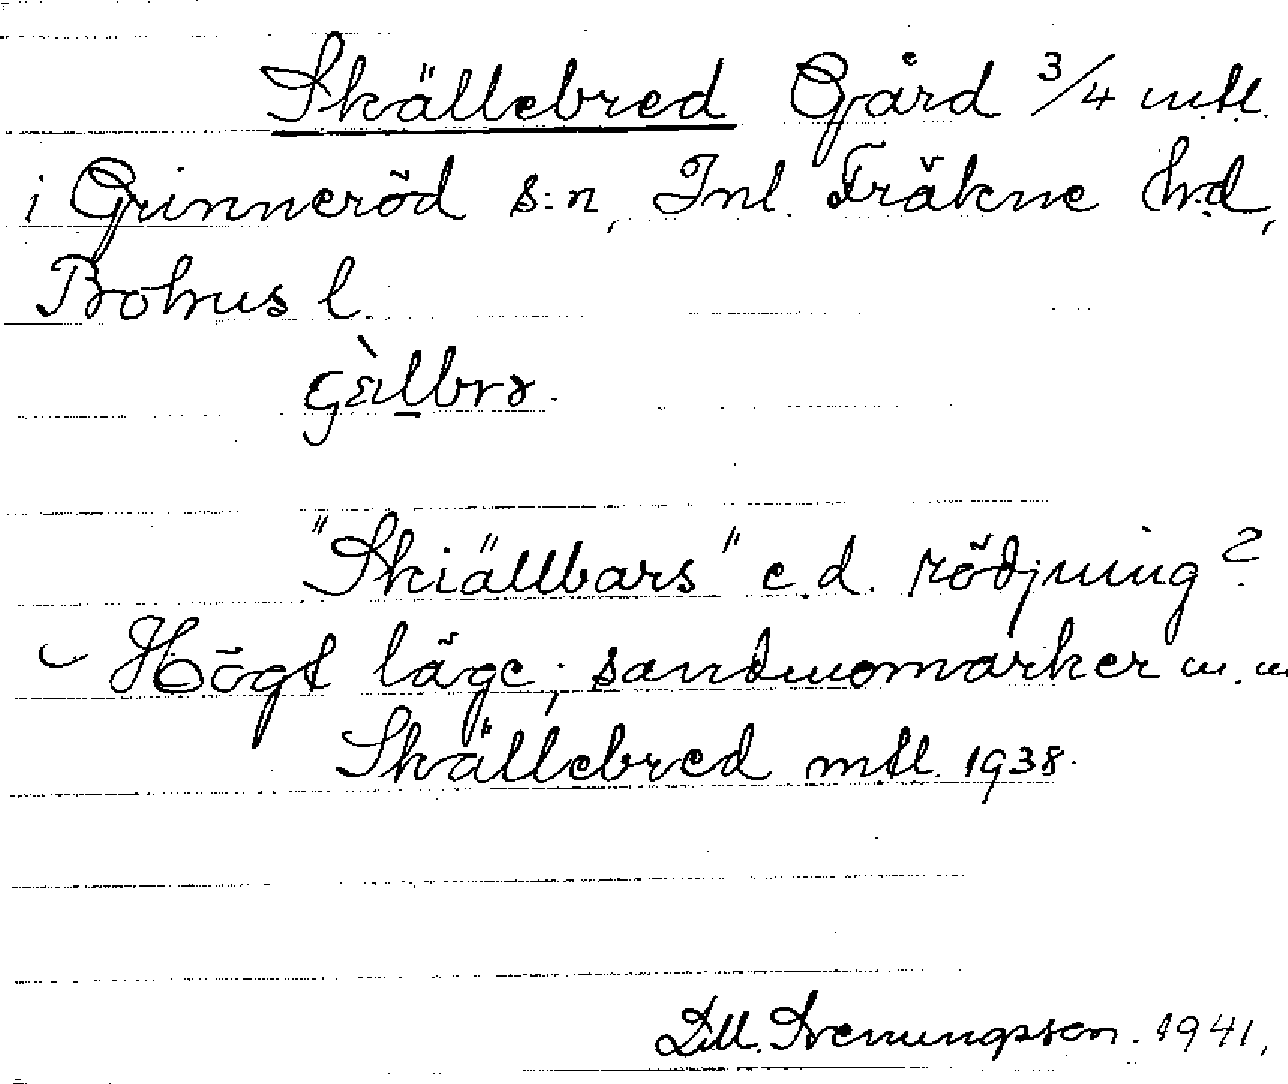 Skällebred Gård 3/4 mtl.
i Grinneröd s:n, Inl. Fräkne hd,
Bohus l.
"Skiällbars" e.d. rödjning?
Högt läge; sandmomarker m.m
Skällebred mtl. 1938.
1941.